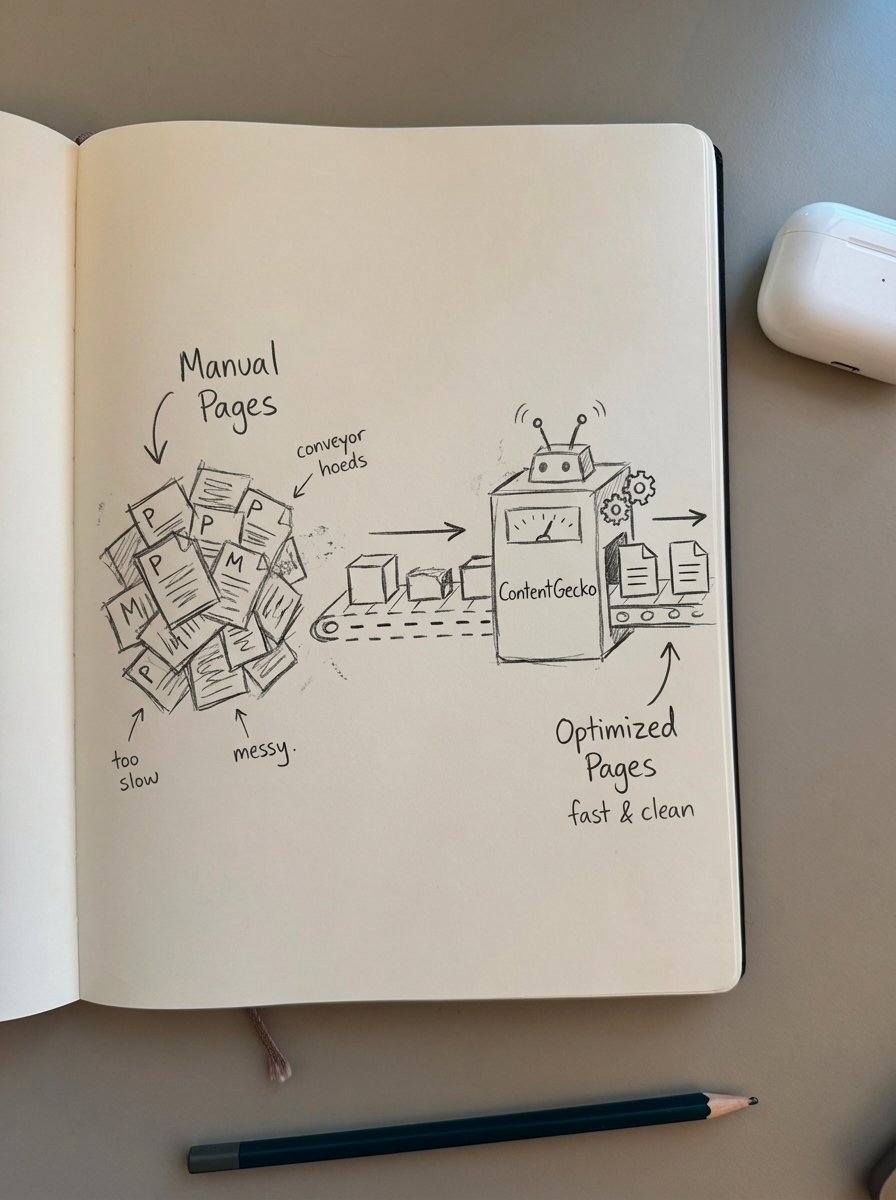 Manual
Pages
conveyor
hoeds
P
P
P
P
M
M
P
too
slow
messy.
ContentGecko
Optimized
Pages
fast & clean